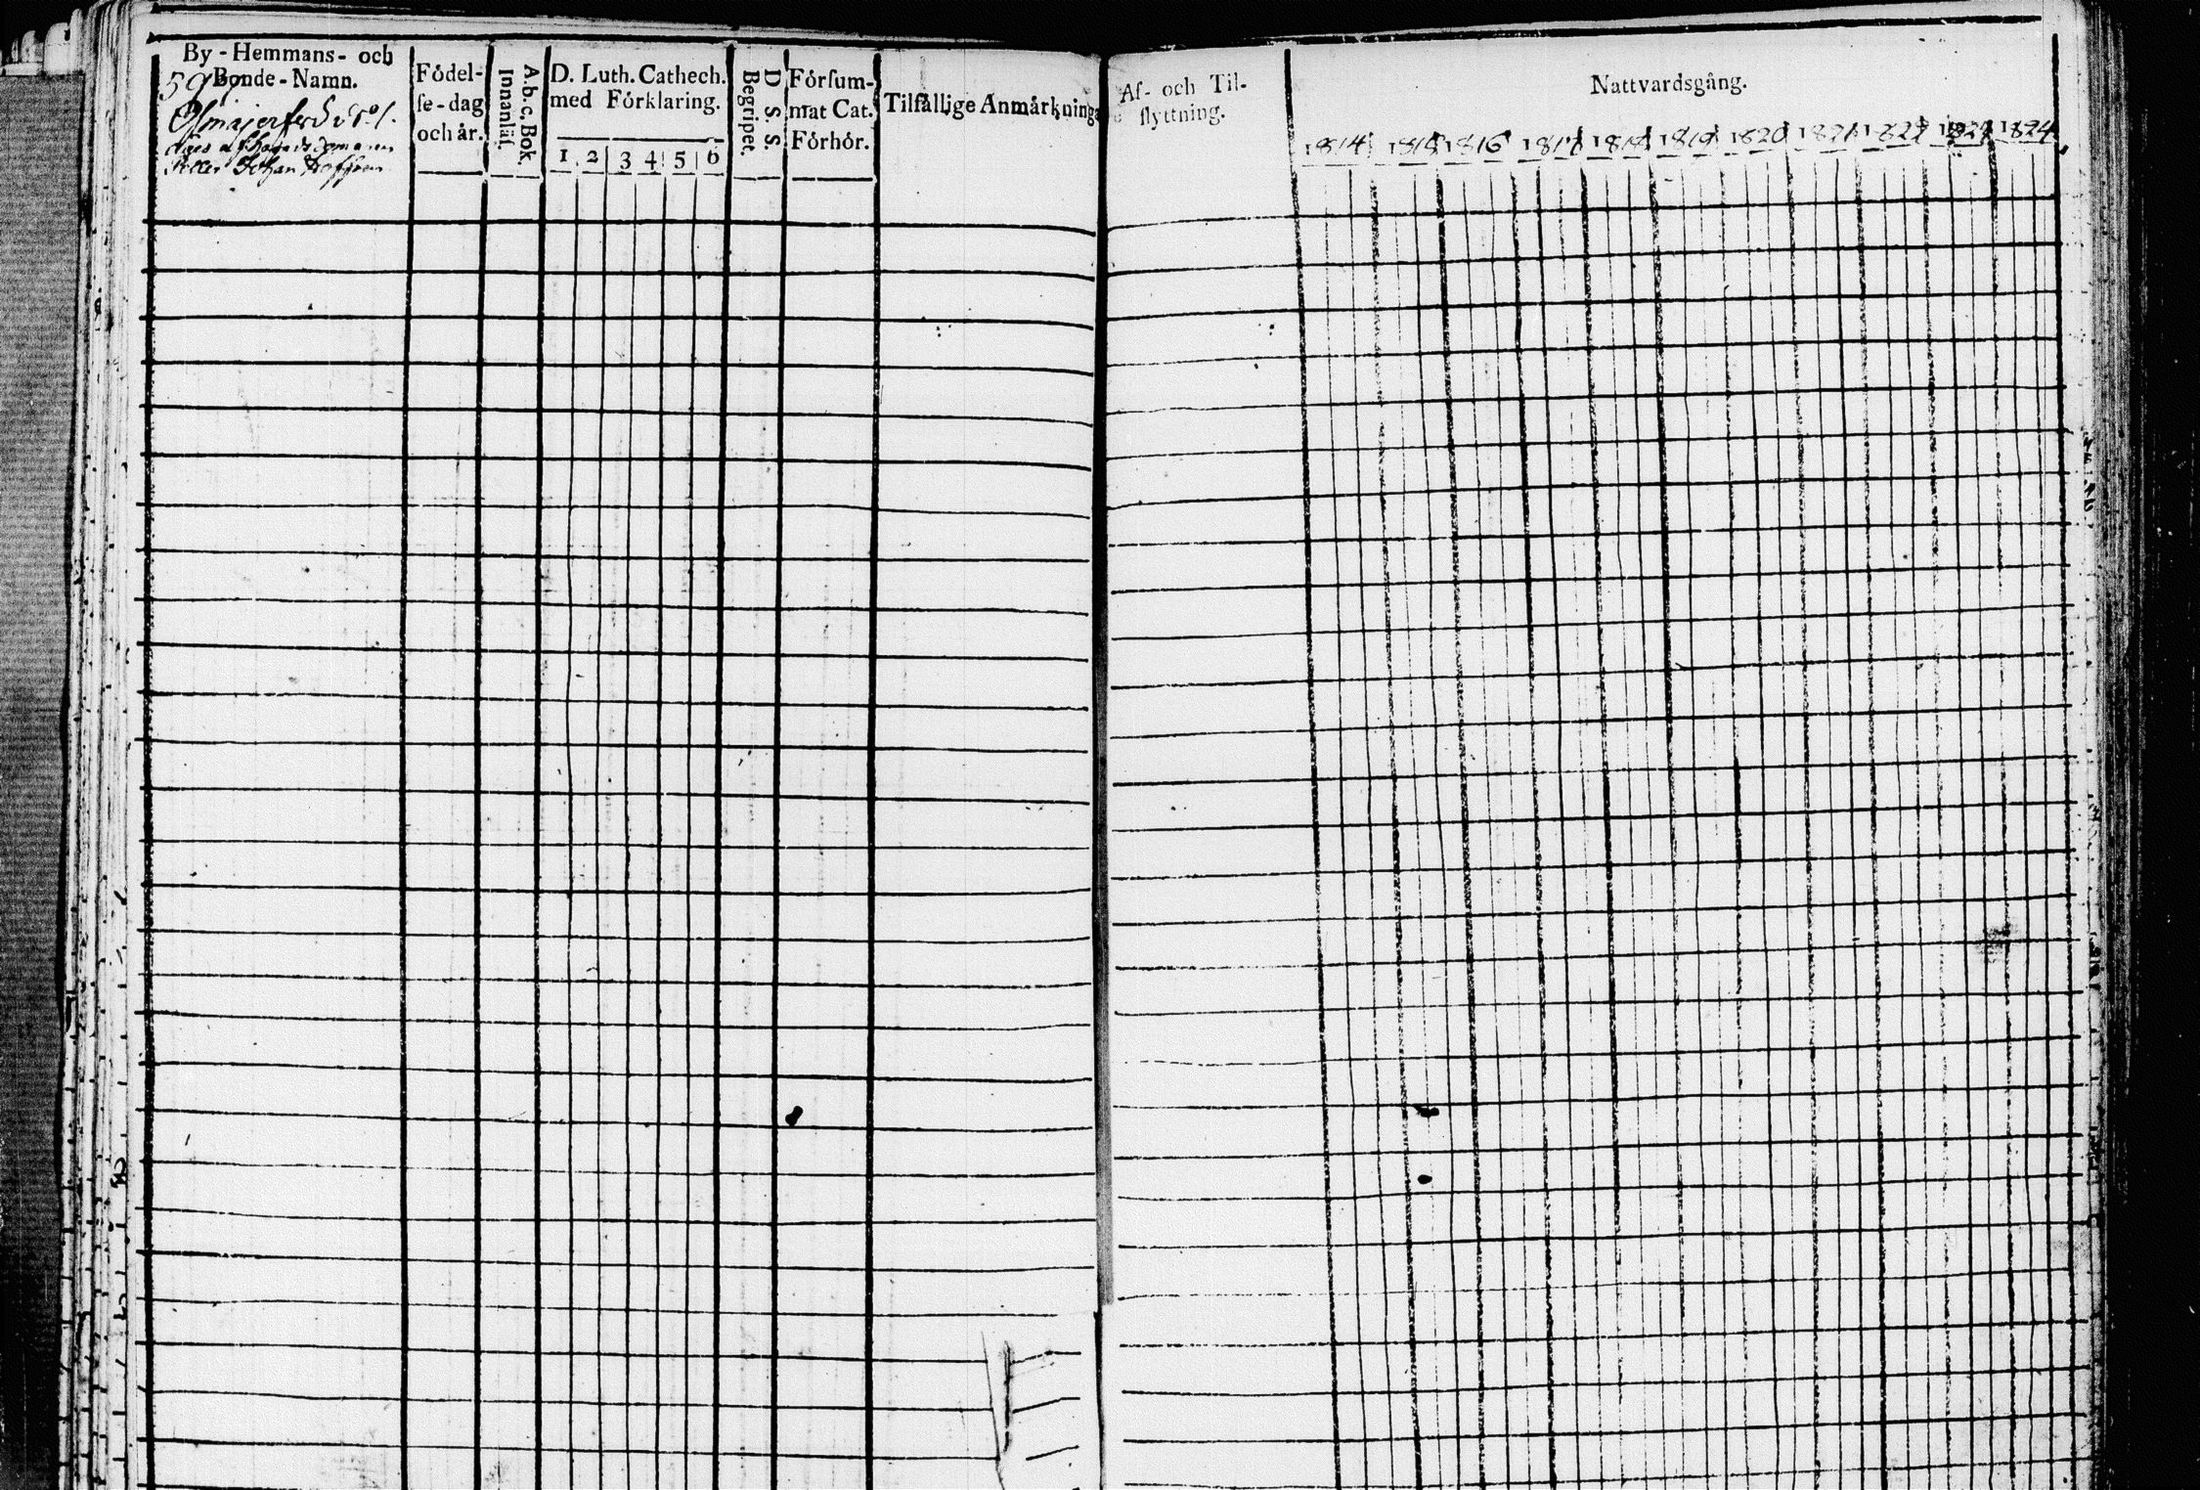 By-Hemmans- och
Bonde-Namn.
59
Johan
Födel-
se-dag
och år.
A.b.c, Bok.
Innanläs.
D. Luth. Cathech.
med Förklaring.
1 2 3 4 5 6
D S S.
Begripet.
Förſum-
mat Cat.
Förhör.
Tilfällige Anmärkninga
Af- och Til-
flyttning.
Nattvardsgång.
1814 1815 1816 1817 1818 1819 1820 1821 1822 1823 1824